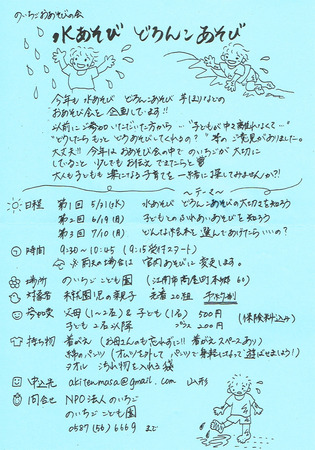 のいちごおあそびの会
水あそび どろんこあそび
今年も 水あそび どろんこあそび 芋ほりなどの
おあそび会を 企画しています!!
以前にご参加いただいた方から…"子どもが中々離れなくて…"
"どうしたらもっと どろあそびしてくれる?" 等の ご意見がありました。
大丈夫!! 今年は おあそび会の中で のいちごが 大切に
していること 少しでも お伝えできたらと
大人も子どもも 楽になる 子育てを 一緒に 探してみませんか?!
~テーマ~
日程 第1回 5/31(水) 水あそび どろんこあそびの大切さを知ろう
第2回 6/19(月) 子どもとのふれあいあそびを知ろう
第3回 7/10(月) どんな絵本を 選んであげたらいいの?
時間 9:30~10:45 (9:15受付スタート)
雨天の場合は 室内あそびに 変更します。
場所 のいちごこども園 (江南市高屋町本郷60)
対象者 未就園児の親子 先着20組 予約制
参加費 父母(1~2名)&子ども(1名) 500円 (保険料込み)
子ども2名以降 プラス 200円
持ち物 着がえ (お母さんのも忘れずに!! 着がえスペースあり)
綿のパンツ (オムツを外して パンツで身軽になって 遊ばせましょう!)
タオル 汚れ物を入れる袋
申込先 akitenmasa@gmail.com 山形
問合せ NPO法人のいちご
のいちごこども園
0587(56)6669 まで